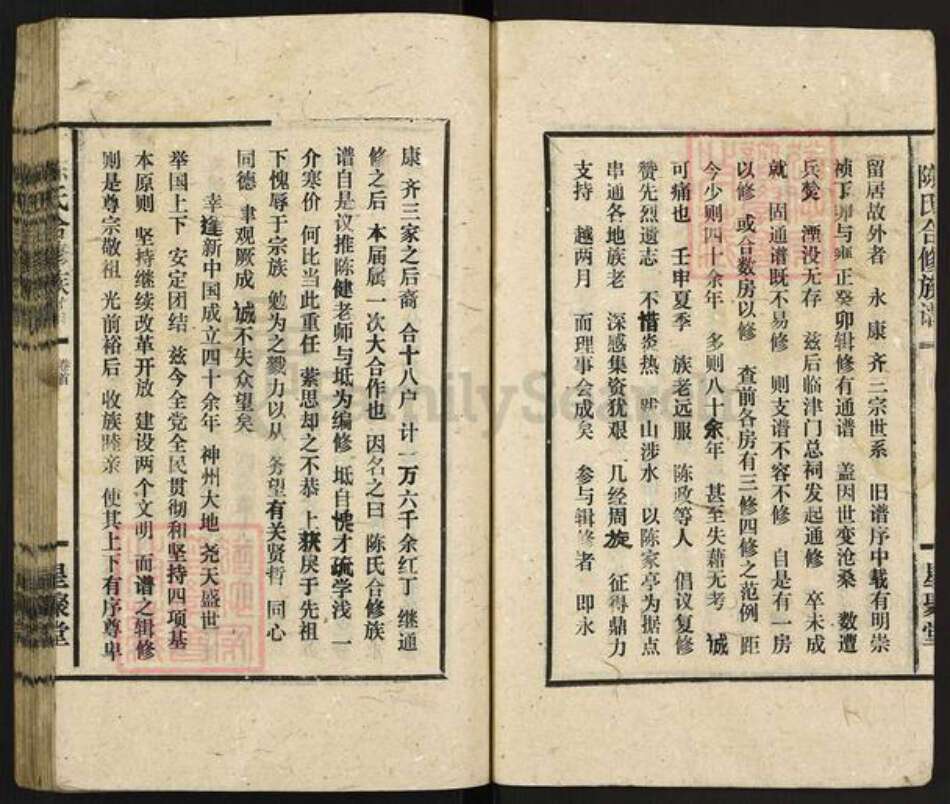 陈氏合修族谱
星聚堂
留居故外者 永 康 齐三宗世系 旧谱序中载有明崇
祯丁卯与雍正癸卯辑修有通谱 盖因世变沧桑 数遭
兵燹 湮没无存 兹后临津门总祠发起通修 卒未成
就 固通谱既不易修 则支谱不容不修 自是有一房
以修 或合数房以修 查前各房有三修四修之范例 距
今少则四十余年 多则八十余年 甚至失藉无考 诚
可痛也 壬申夏季 族老远服 陈政等人 倡议复修
赞先烈遗志 不惜炎热 跋山涉水 以陈家亭为据点
串通各地族老 深感集资犹艰 几经周族 征得鼎力
支持 越两月 而理事会成矣 参与辑修者 即永
康 齐三家之后裔 合十八户 计一万六千余红丁 继通
修之后 本届属一次大合作也 因名之曰 陈氏合修族
谱自是议推陈健老师与坻为编修 坻自愧才疏学浅 一
介寒价 何比当此重任 萦思却之不恭 上获戾于先祖
下愧辱于宗族 勉为之戮力以从 务望有关贤哲 同心
同德 聿观厥成 诚不失众望矣
幸逢新中国成立四十余年 神州大地 尧天盛世
举国上下 安定团结 兹今全党全民贯彻和坚持四项基
本原则 坚持继续改革开放 建设两个文明 而谱之辑修
则是尊宗敬祖 光前裕后 收族睦亲 使其上下有序尊卑
陈氏合修族谱
卷首
星聚堂
FamilySearch